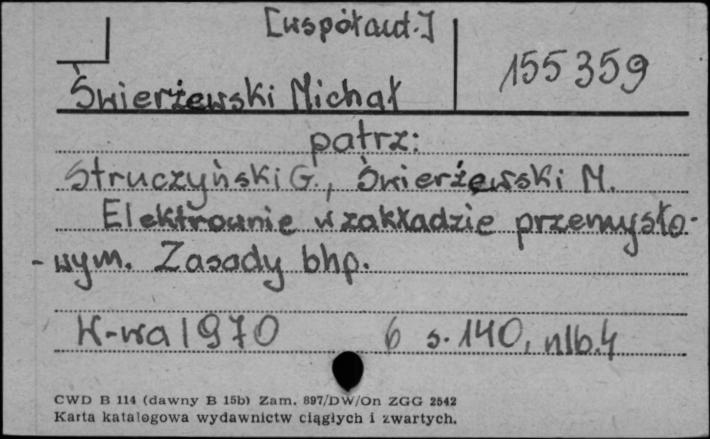 [współaut.]
155359
Świerżewski Michał
patrz:
Struczyński G., Świerżewski M.
Elektrownie w zakładzie przemysło-
-wym. Zasady bhp.
W-wa 1970 6 s. 140, nlb. 4
CWD B 114 (dawny B 15b) Zam. 897/DW/On ZGG 2542
Karta katalogowa wydawnictw ciągłych i zwartych.